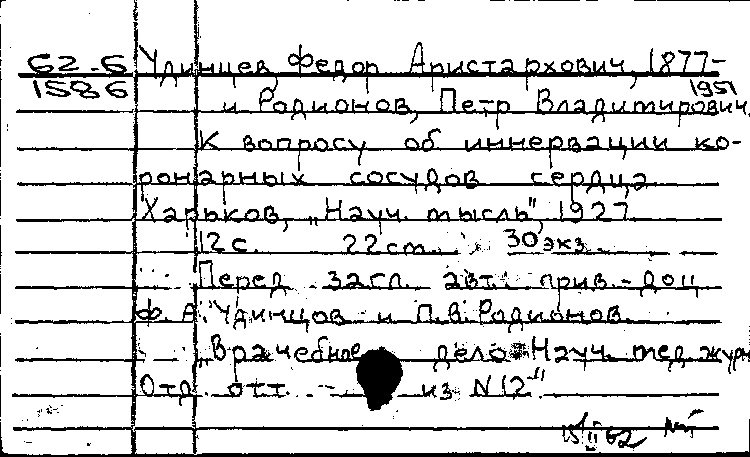 62-6 Удинцев, Федор Аристархович, 1877-
1586 1951
и Родионов, Петр Владимирович
К вопросу об иннервации ко-
ронарных сосудов сердца
Харьков, „Науч. мысль", 1927
12 с. 22 cm. 30 экз.
Перед загл. авт: прив.-доц
Ф. А. Удинцов и П.В. Родионов.
„Врачебное дело Науч. мед. журн
Отд отт из N12"
15/II 62